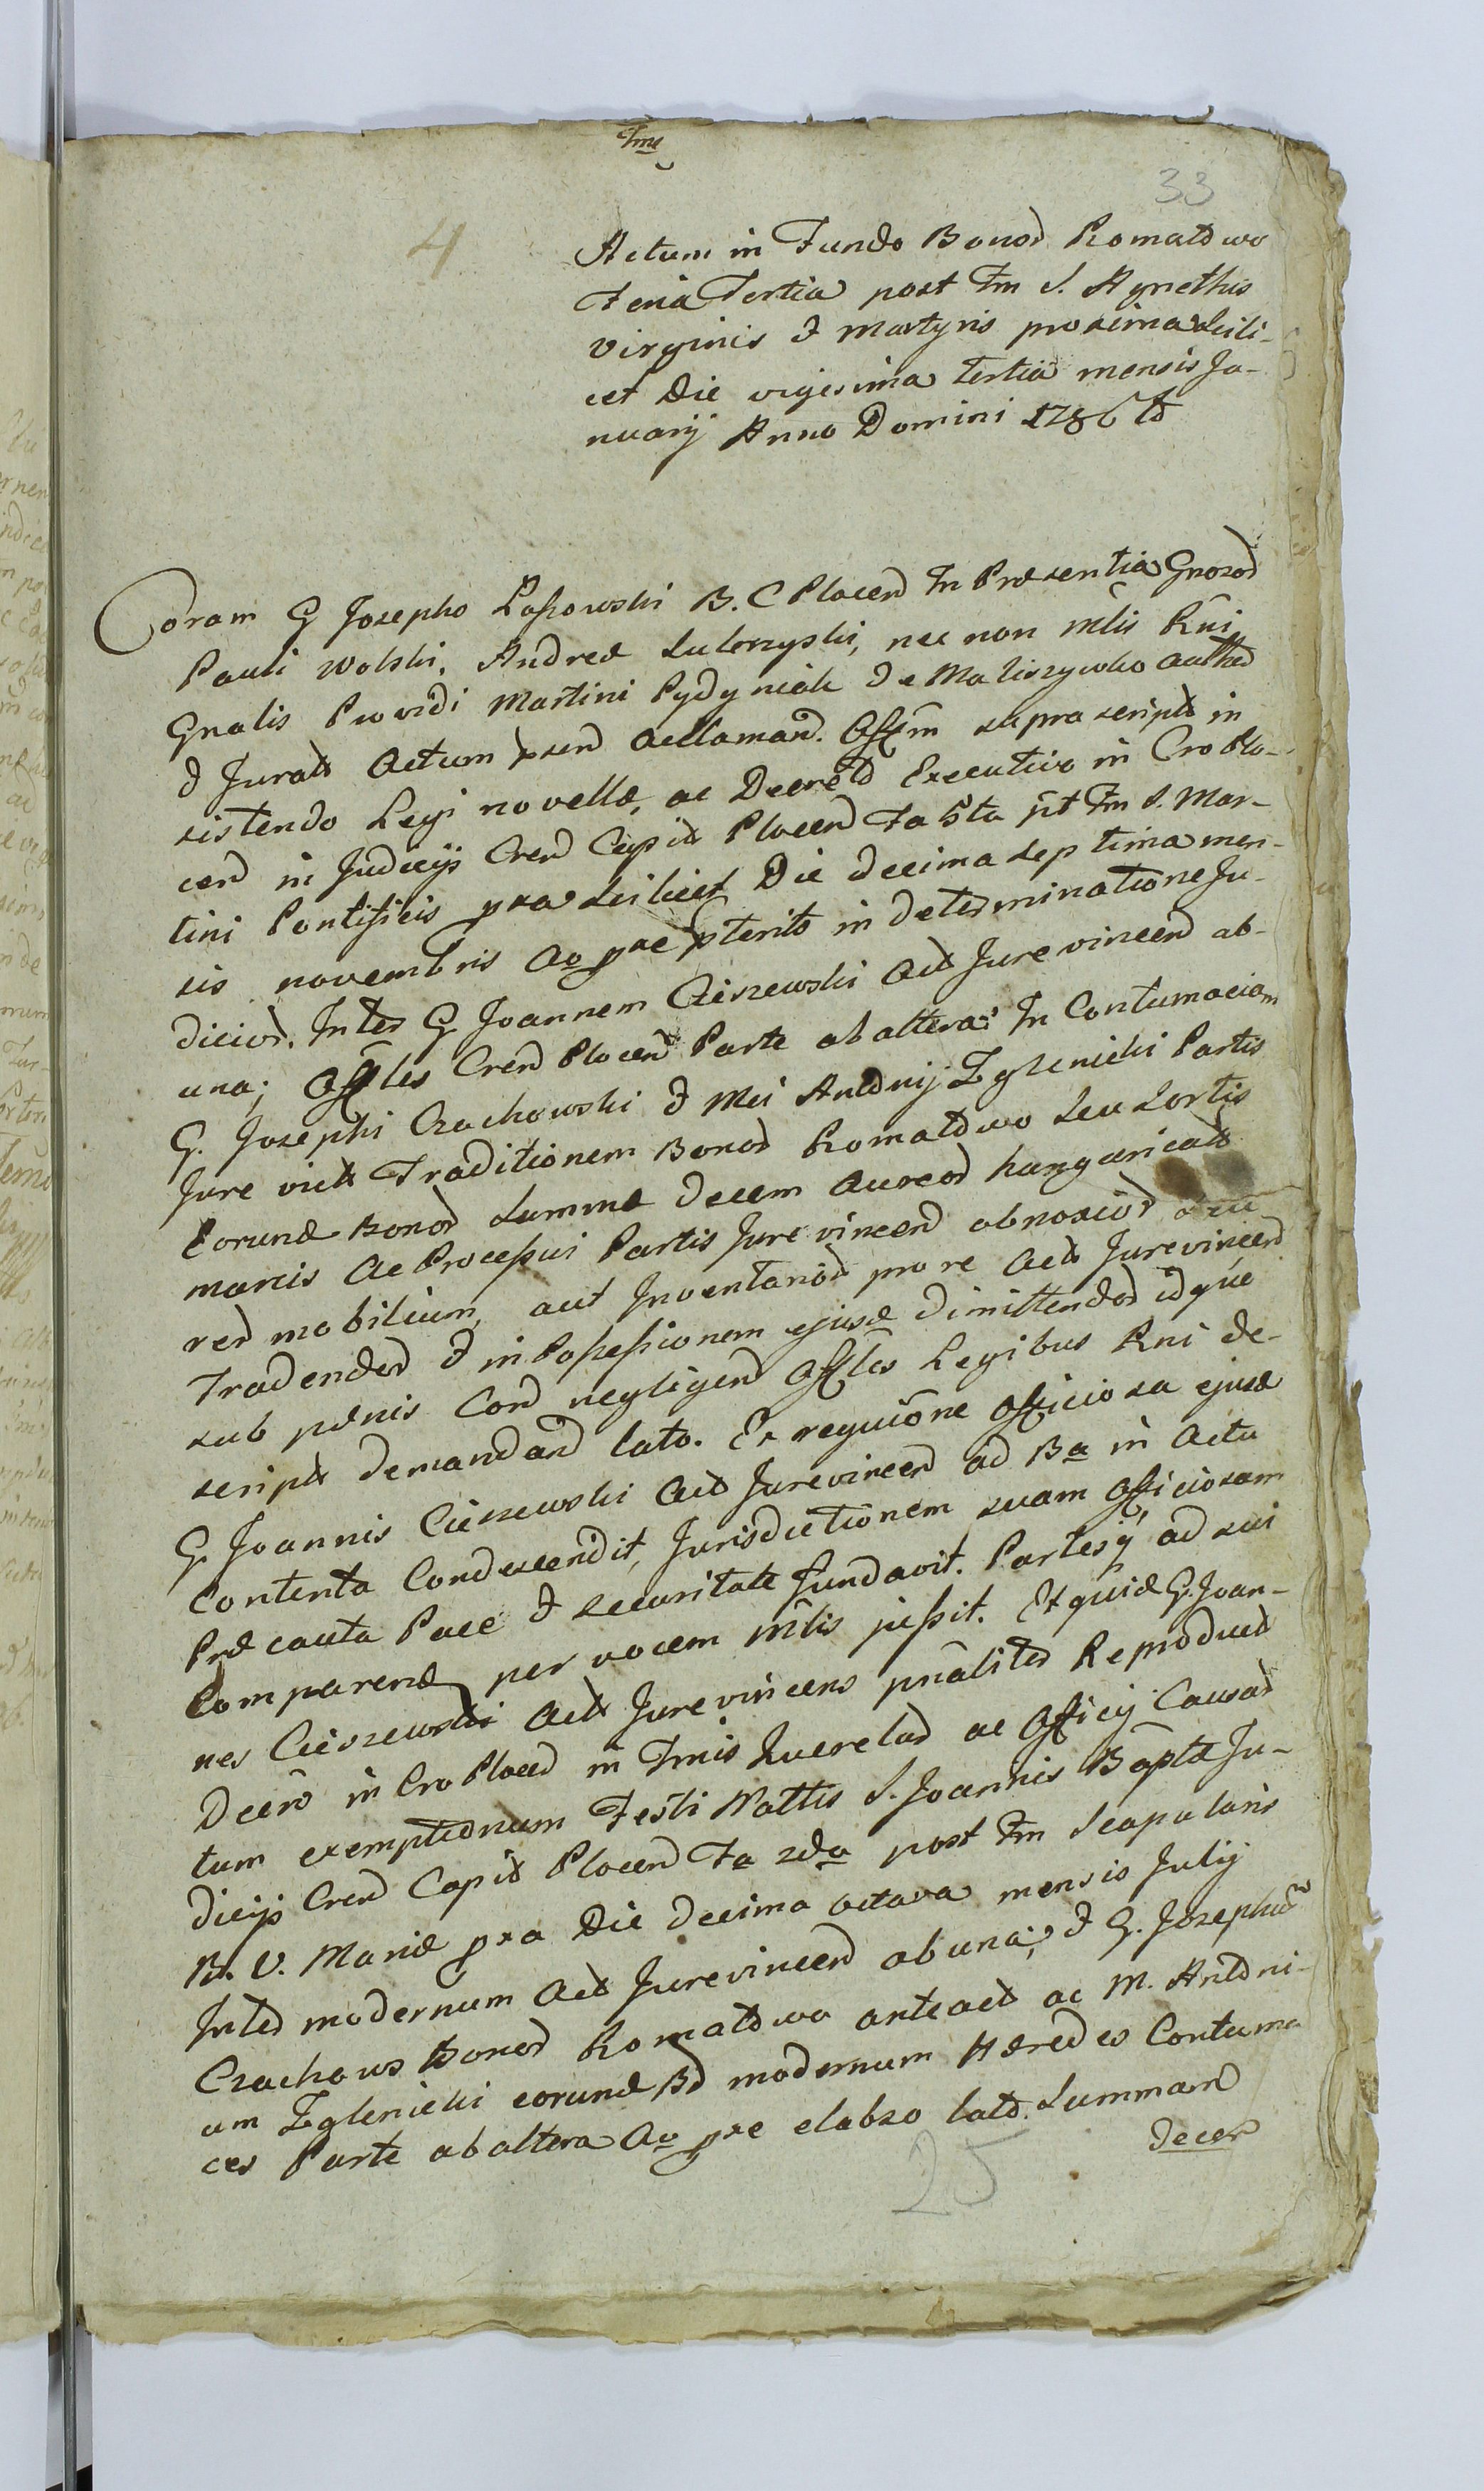 Fme
33
4
Actum in Fundo Bonod Romatowo
Feria Tertia post Fm S. Agnethis
Virginis & Martyris proxima Scili-
cet Die vigesima tertia mensis Ja-
nuarij Anno Domini 1786to
Coram G Josepho Lassowski B. C Plocen In Præsentia Gnosod
Pauli Wolski, Andreæ nec non Mlis Rni
Gnalis Providi Martini Pydyniak de Maliszewko authed
& Jurat Actum psen acclamand. Offm supra script in
sistendo Legi novellæ, ac Decreto Executivo in Cro Plo-
cen in Judicijs Cren Capit Plocen Fa 5ta pt Fm S. Mar-
tini Pontificis pxa Scilicet Die decima septima men-
sis novembris Ao pxe pterito in determinatione Ju-
diciod. Inter G Joannem Cieszewski Act Jurevincen ab-
una; Offles Cren Plocen Parte ab altera; In Contumaciam
G. Josephi Czachowski & Mci Antonij Zglenicki Partis
Jure vict Traditionem Bonod Romatowo seu Sortis
Eorund Bonod Summæ decem aureod hungaricat
marcis ac Processui Partis Jurevincen obnoxiod seu
red mobilium, aut Inventariod pro re Act Jurevincen
Tradended & in Possessionem ejusd dimittendod idque
sub pænis Con negligen Offles Legibus Rni de-
script demandand lato. Ex requione officiosa ejusd
G. Joannis Cieszewski Act Jurevincen ad Ba in Actu
contenta Condescendit, Jurisdictionem suam officiosam
Præcauta Pace & securitate fundavit. Partesq ad sui
Comparend per vocem Mlis jussit. Et quia G. Joan-
nes Cieszewski Act Jurevincens pnaliter Reproduct
Decro in Cro Plocen in Tmis Querelad ac Officij Causad
tum exemptionum Festi Nattis S. Joannis Baptæ Ju-
dicijs Cren Capit Plocen Fa 2da post Fm Scapularis
B. V. Mariæ pxa Die decima octava mensis Julij
Inter modernum Act Jurevincen ab una; & G. Josephum
Czachows Bonod Romatowo anteact ac M. Antoni-
um Zglenicki eorund Bd modernum Hæredes Contuma
ces Parte ab altera Ao pxe elabso lato. Summam
decem
25